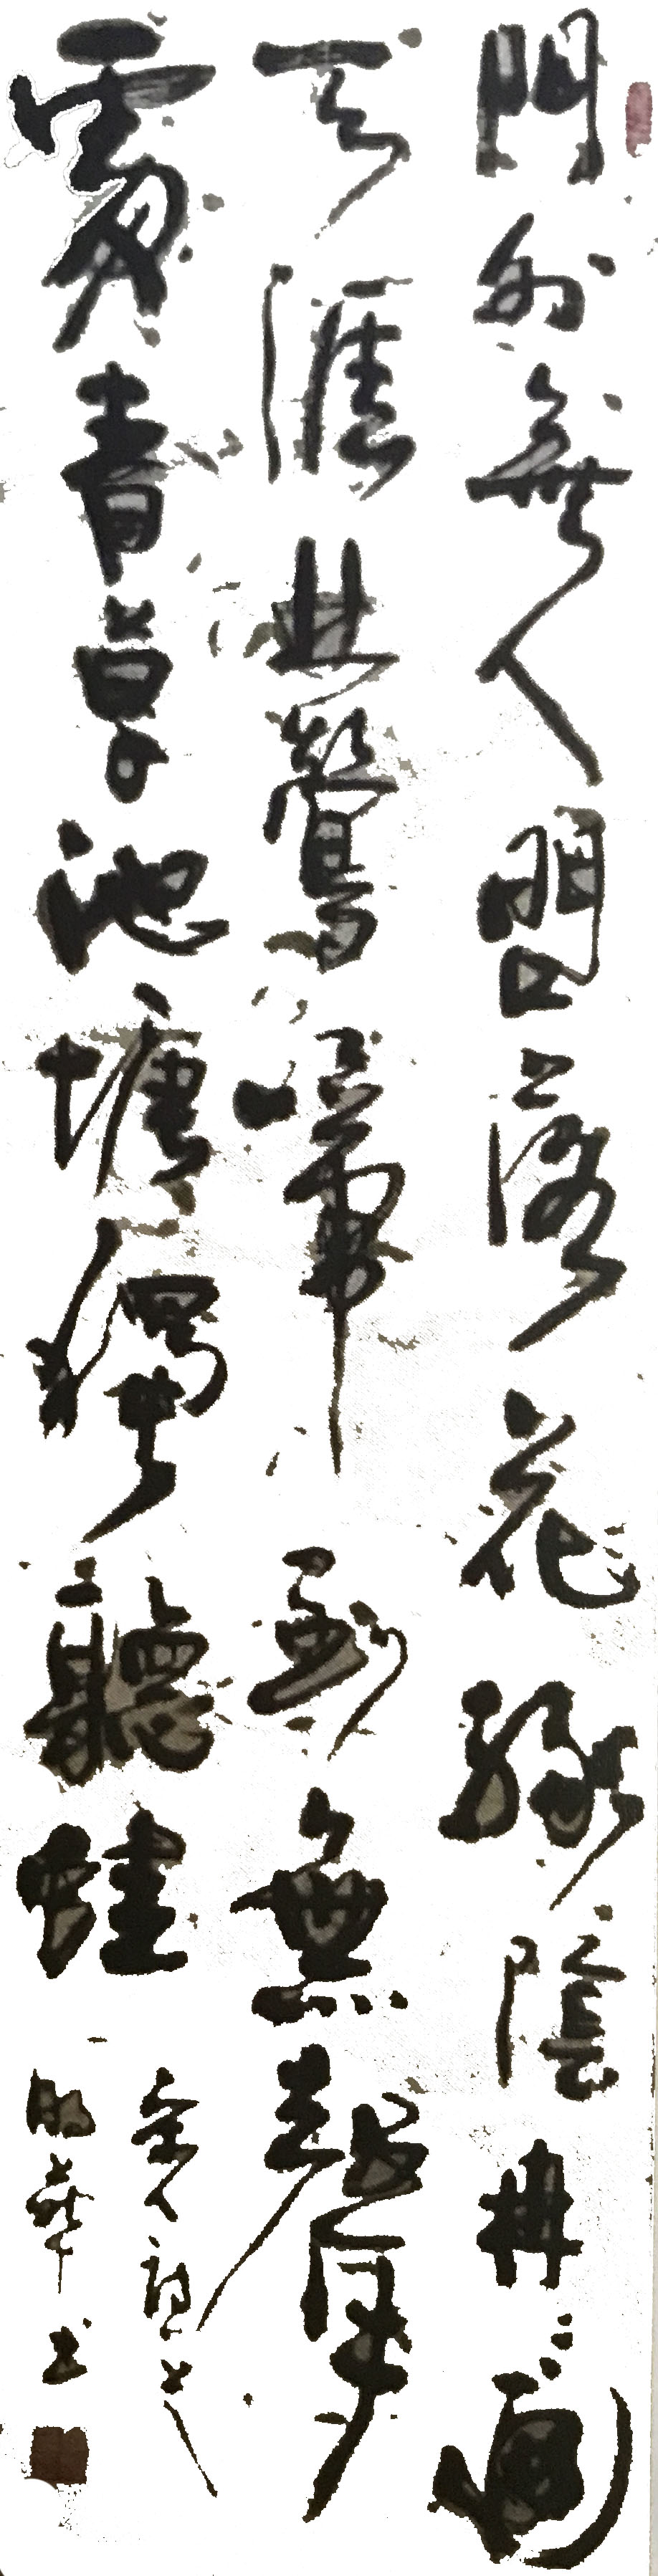 門外無人問落花綠陰冉々遍
天涯林鶯啼到無聲
處青草池塘獨聽蛙
宋人詩
明華书